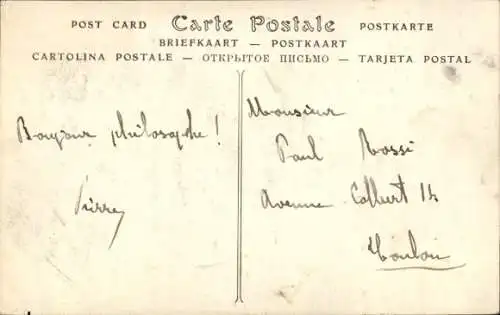 POST CARD Carte Postale POSTKARTE
BRIEFKAART — POSTKAART
CARTOLINA POSTALE — ОТКРЫТОЕ ПИСЬМО — TARJETA POSTAL
Bonjour philosophe!
Pierre
Monsieur
Paul Rossi
Avenue Colbert 14
Toulon